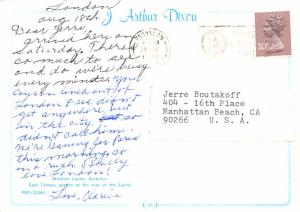 London
Aug 18th
J Arthur Dixon
Dear Jerre,
arrived here on
Saturday. There's
so much to see
and do we're busy
every minute. Your
cousin lives out of
London & we didn't
get anywhere but
in the city, so
didn't call him.
We're leaving for Paris
this morning, so
in a rush & really
love London!
Love,
20P
Jerre Boutakoff
404 - 16th Place
Manhattan Beach, CA
90266 U. S. A.
Windsor Castle, Berkshire
East Terrace garden at the rear of the Castle